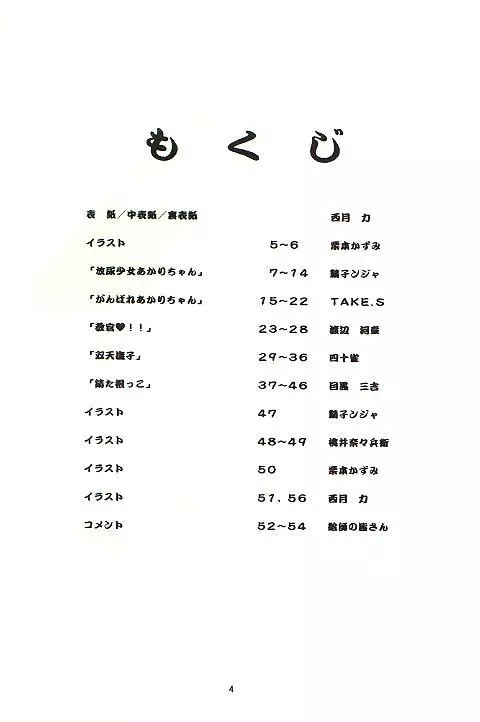 もくじ
表 紙／中表紙／裏表紙 西月 力
イラスト 5～6 栗本かずみ
「放尿少女あかりちゃん」 7～14 銚子ンジャ
「がんばれあかりちゃん」 15～22 TAKE.S
「教官♥！！」 23～28 渡辺
「双天撫子」 29～36 四十雀
「 た根っこ」 37～46 目黒 三吉
イラスト 47 銚子ンジャ
イラスト 48～49 桃井奈々兵衛
イラスト 50 栗本かずみ
イラスト 51、56 西月 力
コメント 52～54 絵師の皆さん
4